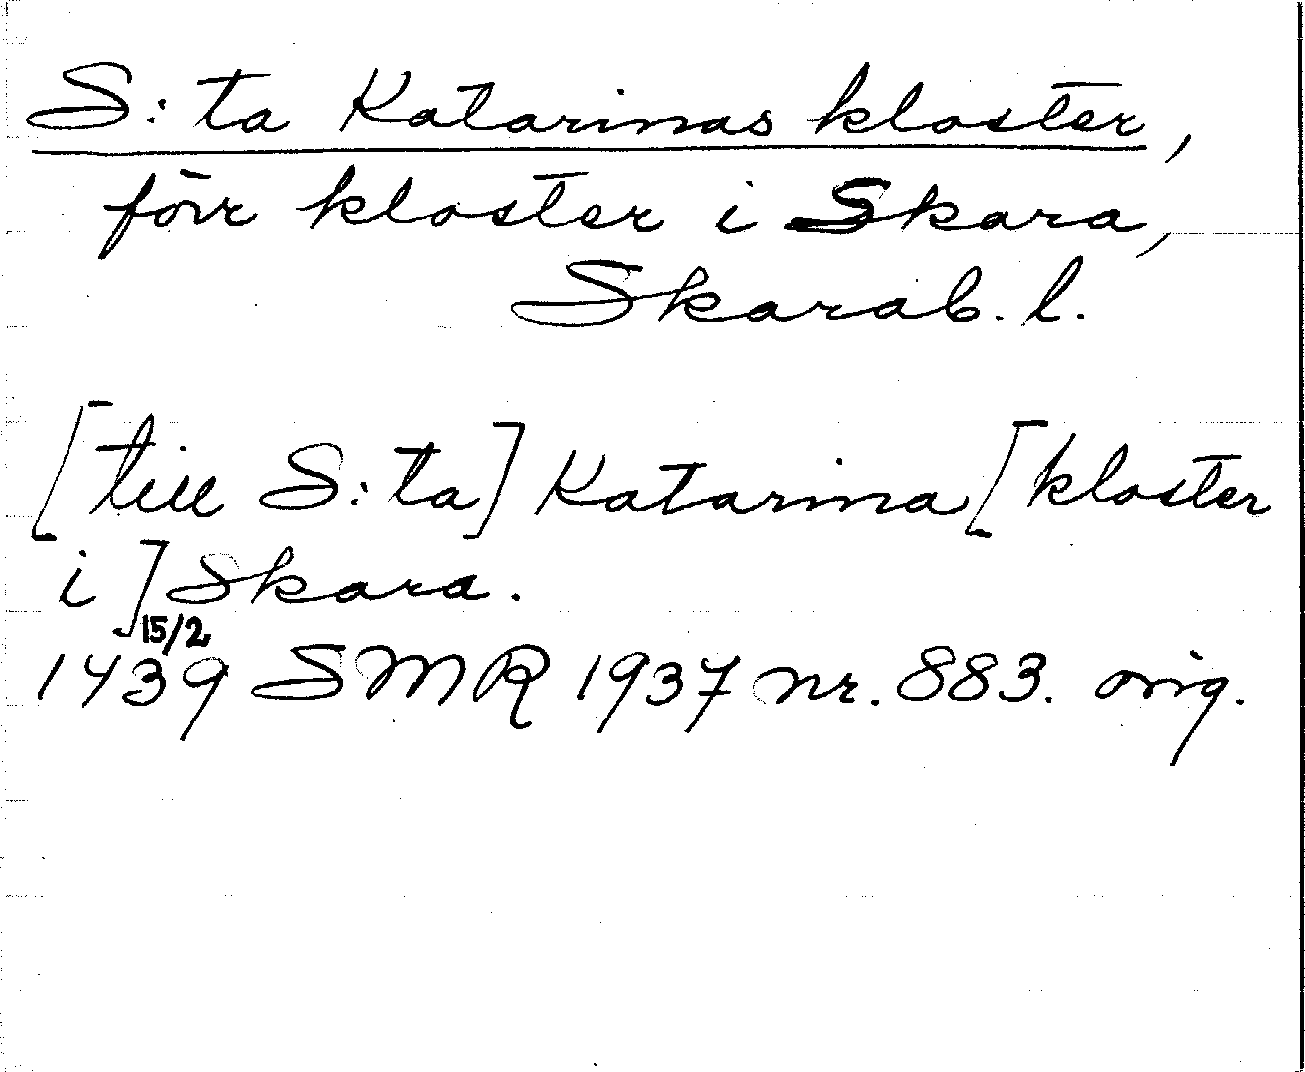 S:ta Katarinas kloster,
förr kloster i Skara,
Skarab. l.
[till S:ta] Katarina [kloster
i] Skara.
15/2
1439 SMR 1937 nr. 883. orig.